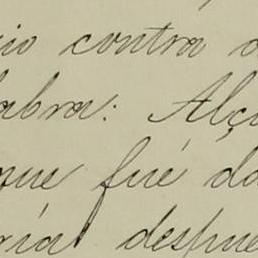 io contra a
labra: Alça
que fué da
ria despue